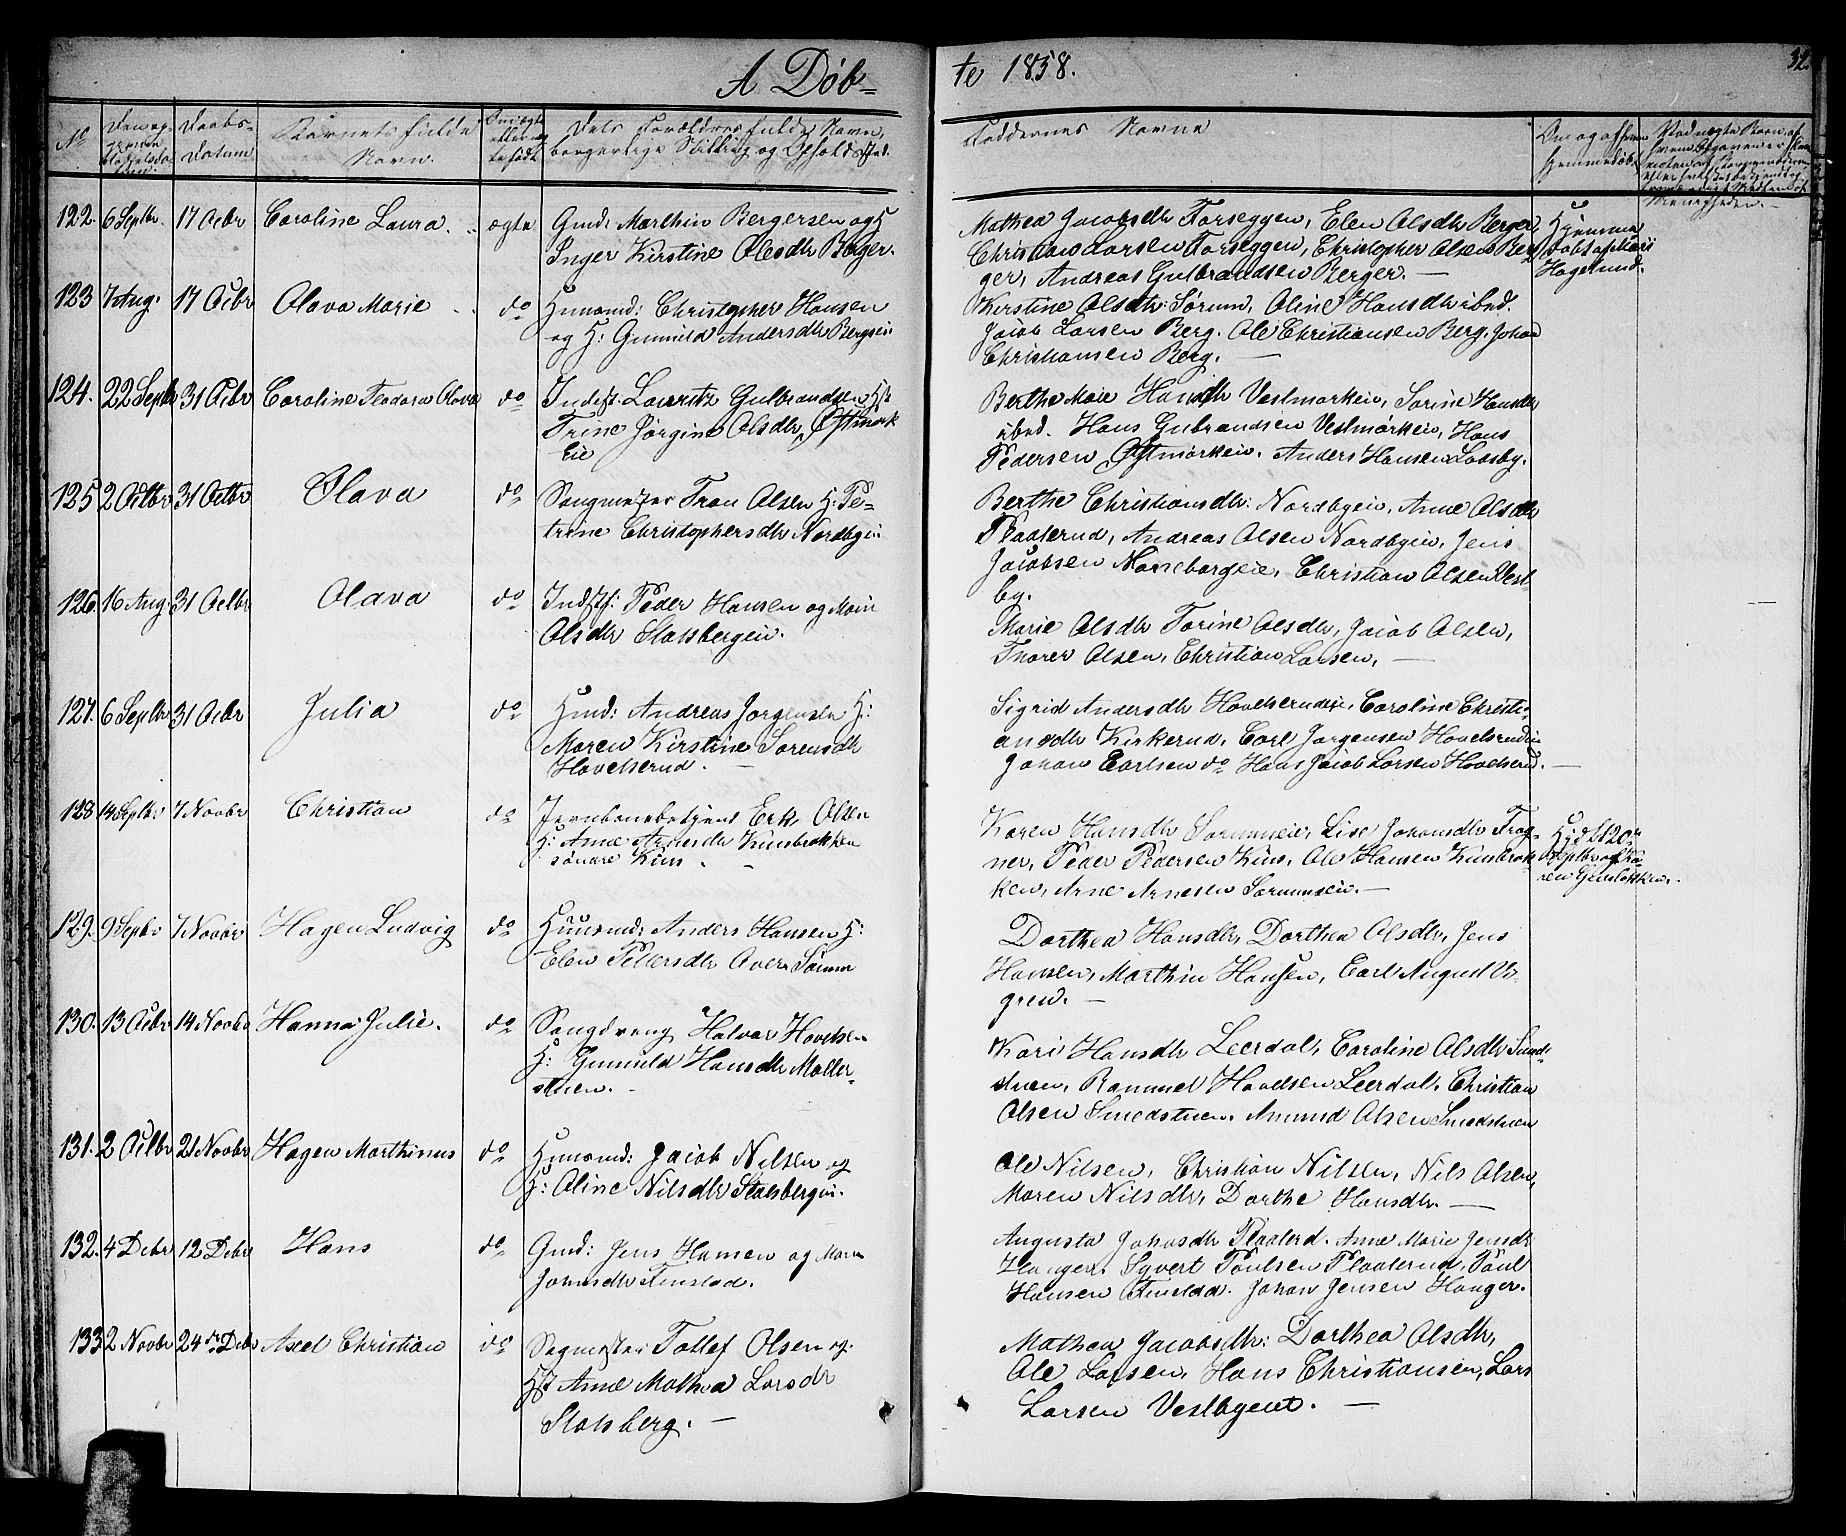 A Døb-
te 1858.
32.
No
Daabs-
Datum
Barnets fulde
Navn.
Dets Forældres fulde Navn,
borgerlige Stilling og Opholdssted.
Faddernes Navne
122. 6 Septbr. 17 Octbr Caroline Laura. ægte Gmd: Marthin Bergersen og H
Inger Kirstine Olesdtr Berger.
Mathea Jacobsdtr Forseggen, Elen Olsdtr Berger,
Christian Larsen Forseggen, Christopher Olsen Ber
ger, Andreas Gulbrandsen Berger. —
Hjemme
døbt af
Hagelund.
123 7 Aug. 17 Octbr Olava Marie do Huusmd: Christopher Hansen
og H: Gunnild Andersdtr Bergseie
Kirstine Olsdtr: Sørum, Oline Hansdtr ibid.
Jacob Larsen Berg. Ole Christiansen Berg, Johan
Christiansen Berg. —
124. 22 Septbr 31 Octbr Caroline Teodora Olava do Inds: Lauritz Gulbrandsen H:
Trine Jørgine Olsdtr, Østmork
eie
Berthe Maie Hansdtr Vestmorkeie, Sorine Hansdtr
ibid. Hans Gubrandsen Vestmørkeie, Hans
Pedersen Østmorkeie. Anders Hansen Loosby.
125 2 Octbr 31 Octbr Olava do Saugmester Tron Olsen H: Pe-
trine Christophersdtr Nordbyeie
Berthe Christiansdtr: Nordbyeie, Anne Olsdtr
Plaaterud, Andreas Olsen Nordbyeie, Jens
Jacobsen Noneborgeie, Christian Olsen Vest
by.
126. 16 Aug 31 Octbr Olava do Indst: Peder Hansen og Mari
Olsdtr Stalsbergeie.
Marie Olsdtr Torine Olsdtr, Jacob Olsen,
Thorer Olsen, Christian Larsen, —
127. 6 Septbr 31 Octbr Julia do Hmd: Andreas Jorgensen H:
Maren Kirstine Sorensdtr
Hovelserud. —
Sigrid Andersdtr Hovelserudeie, Caroline Christi-
ansdtr Kirkerud, Carl Jorgensen Hovelsrudeie
Johan Carlsen do Hans Jacob Larsen Hovelserud. —
128 14 Septbr 7 Novbr Christian do Jernbanebetjent Erk Olsen
H: Anne Arnesdtr Kiusbrekken
søndre Kius. —
Karen Hansdtr Sorumseie, Lise Johansdtr Frog-
ner, Peder Pedersen Kius, Ole Hansen Kiusbrek
ken, Arne Arnesen Sorumseie. —
Hjdbt 20
Septbr af Ka-
ren
129. 9 Septbr 7 Novbr Hagen Ludvig do Huusmd: Anders Hansen H:
Elen Pedersdtr Aver Sørum
Dorthea Hansdtr, Dorthea Olsdtr, Jens
Hansen, Marthin Hansen, Carl August Vi
gren. —
130. 13 Octbr 14 Novbr Hanna Julie. do Saugdreng Halvor Hovelsen
H: Gunnild Hansdtr Moller-
stuen. -
Kari Hansdtr Leerdal, Caroline Olsdtr Smed-
stuen, Rammel Hovelsen Leerdal, Christian
Olsen Smedstuen. Amund Olsen Smedstuen
131. 2 Octbr 21 Novbr Hagen Marthinus do Huusmd: Jacob Nilsen og
H: Oline Nilsdtr Stalsbergeie.
Ole Nilsen, Christian Nilsen, Nils Olsen,
Maren Nilsdtr, Dorthe Hansdtr. —
132. 4 Debr 12 Debr Hans do Gmd: Jens Hansen og Maren
Johansdtr Finstad.
Augusta Johasdtr Plaaterd. Anne Marie Jensdtr
Hanger. Syvert Poulsen Plaaterud, Poul
Hansen Finstad. Johan Jensen Hanger.
133 2 Novbr 24de Debr Axel Christian do Sagmester Tollef Olsen og
Hst Anne Mathea Larsdtr
Stalsberg. —
Mathea Jacobsdtr: Dorthea Olsdtr,
Ole Larsen, Hans Christiansen, Lars
Larsen Vestbyent. —